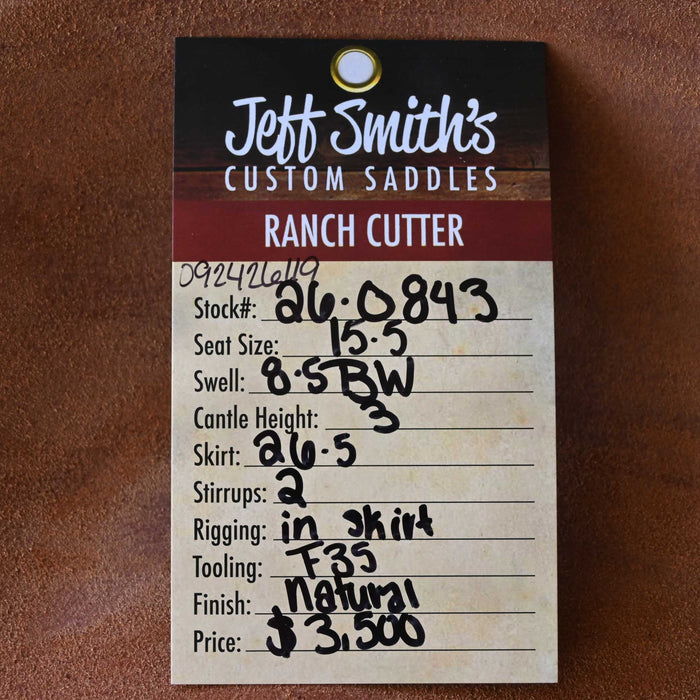 Jeff Smith's
CUSTOM SADDLES
RANCH CUTTER
092426119
Stock#: 26.0843
Seat Size: 15.5
Swell: 8.5 BW
Cantle Height: 3
Skirt: 26.5
Stirrups: 2
Rigging: in skirt
Tooling: F35
Finish: natural
Price: $3,500